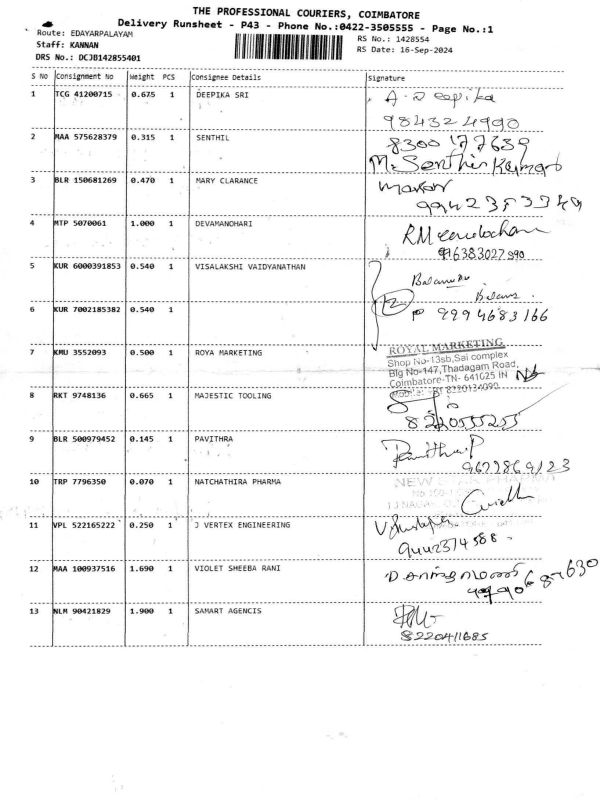 THE PROFESSIONAL COURIERS, COIMBATORE
Delivery Runsheet - P43 - Phone No.:0422-3505555 - Page No.:1
Route: EDAYARPALAYAM
RS No.: 1428554
Staff: KANNAN
RS Date: 16-Sep-2024
DRS No.: DCJB142855401
S No Consignment No Weight PCS Consignee Details Signature
1 TCG 41200715 0.675 1 DEEPIKA SRI A. Deepika
984324990
2 MAA 575628379 0.315 1 SENTHIL 8300177639
M. Senthil Kumar
3 BLR 150681269 0.470 1 MARY CLARANCE
4 MTP 5070061 1.000 1 DEVAMANOHARI
5 KUR 6000391853 0.540 1 VISALAKSHI VAIDYANATHAN
6 KUR 7002185382 0.540 1 2 9994683166
7 KMU 3552093 0.500 1 ROYA MARKETING ROYAL MARKETING
Shop No-13sb,Sai complex
Blg No-147,Thadagam Road,
Coimbatore-TN- 641025 IN
8 RKT 9748136 0.665 1 MAJESTIC TOOLING
8220555255
9 BLR 500979452 0.145 1 PAVITHRA Pavithra P
10 TRP 7796350 0.070 1 NATCHATHIRA PHARMA
11 VPL 522165222 0.250 1 J VERTEX ENGINEERING
12 MAA 100937516 1.690 1 VIOLET SHEEBA RANI
13 NLM 90421829 1.900 1 SAMART AGENCIS
8220411685